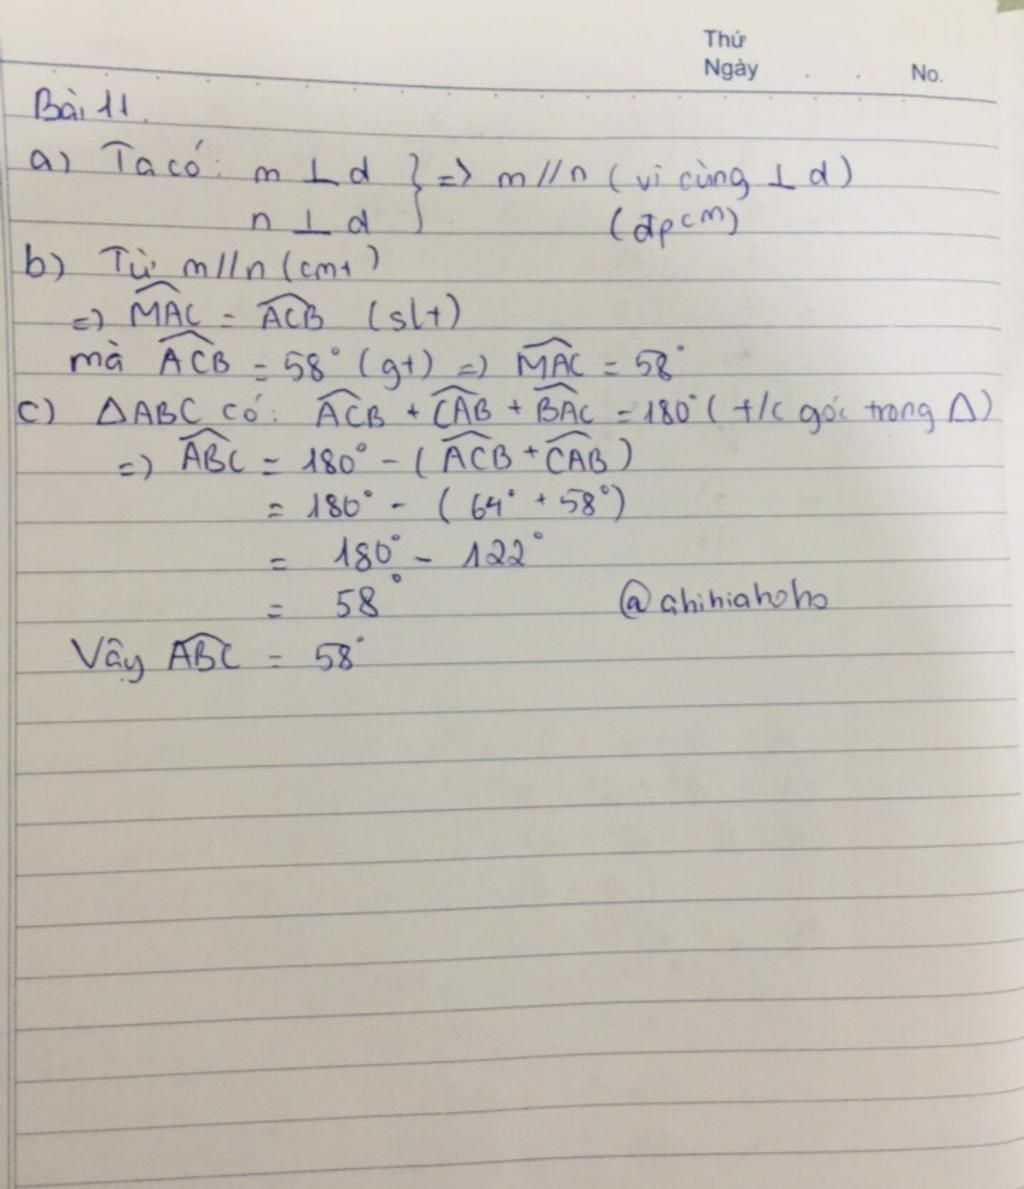 Thứ
Ngày . . No.
Bài 11.
a) Ta có: m ⊥ d } => m // n (vì cùng ⊥ d)
n ⊥ d (đpcm)
b) Từ m // n (cmt)
=> \widehat{MAC} = \widehat{ACB} (slt)
mà \widehat{ACB} = 58° (gt) => \widehat{MAC} = 58°
c) ΔABC có: \widehat{ACB} + \widehat{CAB} + \widehat{BAC} = 180° (t/c góc trong Δ)
=> \widehat{ABC} = 180° - (\widehat{ACB} + \widehat{CAB})
= 180° - (64° + 58°)
= 180° - 122°
= 58° @ahihiahoho
Vậy \widehat{ABC} = 58°